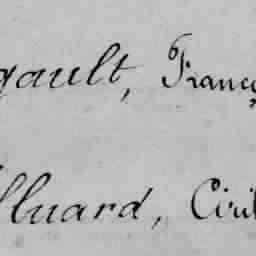 gault, Franç
lluard, Ciril